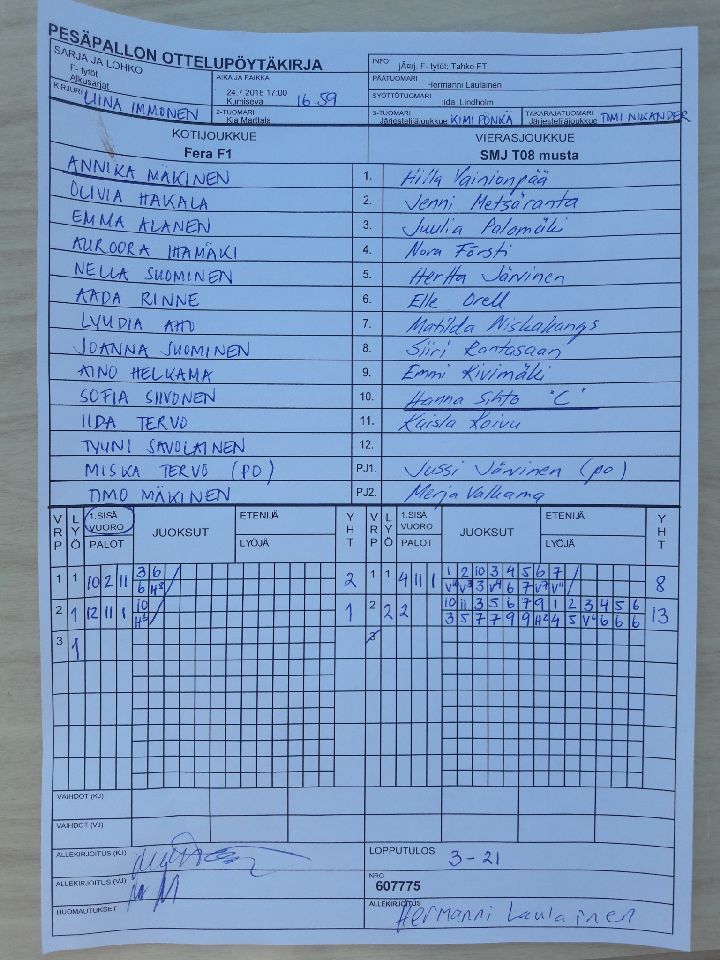 PESÄPALLON OTTELUPÖYTÄKIRJA
SARJA JA LOHKO
F- tytöt
Alkusarjat
AIKA JA PAIKKA
24.7.2018 17:00
Kumiseva 16.59
INFO
jÃ¤rj. F- tytöt: Tahko FT
PÄÄTUOMARI
Hermanni Laulainen
SYÖTTÖTUOMARI
Iida Lindholm
KIRJURI LIINA IMMONEN
2-TUOMARI
Kia Marttala
3-TUOMARI
Järjestelijäjoukkue KIMI PONKÄ
TAKARAJATUOMARI
Järjestelijäjoukkue TOMI NIKANDER
KOTIJOUKKUE VIERASJOUKKUE
Fera F1 SMJ T08 musta
ANNIKA MÄKINEN 1. Hilla Vainionpää
OLIVIA HAKALA 2. Jenni Metsäranta
EMMA ALANEN 3. Juulia Palomäki
AUROORA IHAMÄKI 4. Nora Försti
NELLA SUOMINEN 5. Hertta Järvinen
AADA RINNE 6. Elle Orell
LYYDIA AHO 7. Matilda Niskakangas
JOANNA SUOMINEN 8. Siiri Rantasaari
AINO HELKAMA 9. Emmi Kivimäki
SOFIA SIIVONEN 10. Hanna Sihto "C"
IIDA TERVO 11. Kaisla Koivu
TYYNI SAVOLAINEN 12.
MISKA TERVO (PO) PJ1. Jussi Järvinen (po)
TIMO MÄKINEN PJ2. Merja Valkama
VRP LYÖ 1.SISÄ VUORO PALOT JUOKSUT ETENIJÄ LYÖJÄ YHT VRP LYÖ 1.SISÄ VUORO PALOT JUOKSUT ETENIJÄ LYÖJÄ YHT
1 1 10 2 11 3 6 / 2 1 1 4 11 1 1 2 10 3 4 5 6 7 / 8
6 H3 V4 V3 3 V4 6 7 V7 V11
2 1 12 11 1 10 / 1 2 2 2 10 11 3 5 6 7 9 1 2 3 4 5 6 13
H3 3 5 7 7 9 9 H2 4 5 V6 6 6 6
3 1 3
VAIHDOT (KJ)
VAIHDOT (VJ)
ALLEKIRJOITUS (KJ)
LOPPUTULOS 3-21
ALLEKIRJOITUS (VJ)
NRO
607775
HUOMAUTUKSET
ALLEKIRJOITUS
Hermanni Laulainen